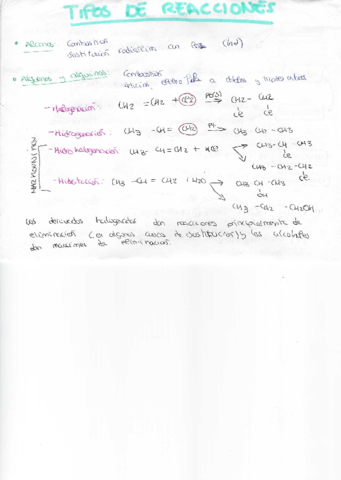 TIPOS DE REACCIONES
* Alcanos: Combustión
sustitución radicálica con
* Alquenos y alquinos: Combustión
Adición, a dobles y triples enlaces
- Halogenación: CH2 = CH2 + Cl2 → CH2 - CH2
Cl Cl
- Hidrogenación: CH3 - CH = CH2 Pt → CH3 - CH2 - CH3
MARKOVNIKOV
- Hidrohalogenación: CH3 - CH = CH2 + HCl → CH3 - CH - CH3
Cl
CH3 - CH2 - CH2
Cl
- Hidratación: CH3 - CH = CH2 H2O → CH3 CH - CH3
OH
CH3 - CH2 - CH2OH
Los derivados halogenados dan reacciones principalmente de
eliminación (en algunos casos de sustitución) y los alcoholes
dan reacciones de eliminación.